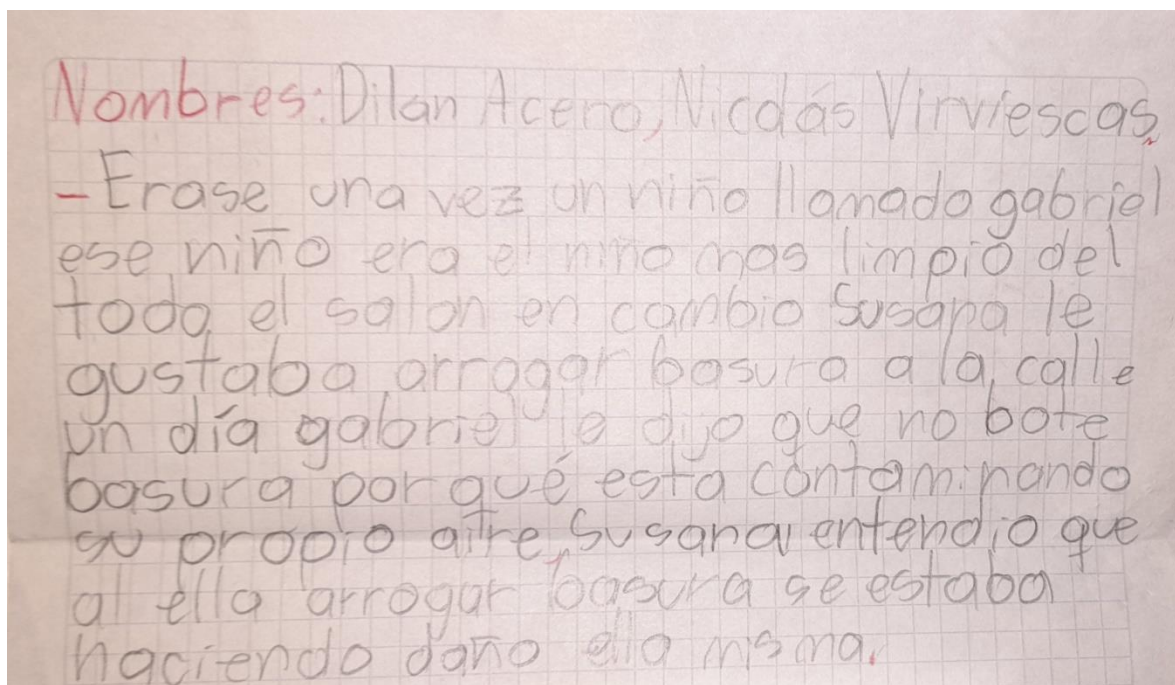 Nombres: Dilan Acero, Nicolás Virviescas.
- Erase una vez un niño llamado gabriel
ese niño era el niño mas limpio del
todo el salon en cambio Susana le
gustaba arrogar basura a la calle
un día gabriel le dijo que no bote
basura por qué esta contaminando
su propio aire, Susana entendio que
al ella arrogar basura se estaba
haciendo daño ella misma.